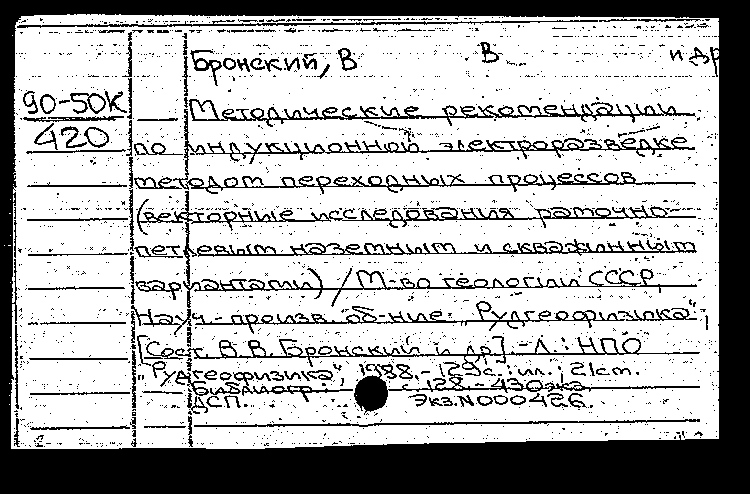 Бронский, В В и др
90-50К
420
Методические рекомендации
по индукционной электроразведке
методом переходных процессов
(векторные исследования рамочно-
петлевым наземным и скважинным
вариантами) / М-во геологии СССР,
Науч.-произв. об-ние "Рудгеофизика";
[Сост. В.В. Бронский и др.] -Л.: НПО
"Рудгеофизика", 1988.-129с.: ил.; 21см.
Библиогр.: с.128.-430экз.
ДСП. Экз.N000426.